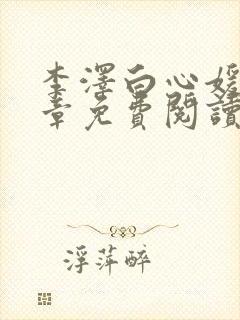 李澤白心媛
章免費閱讀
浮萍醉